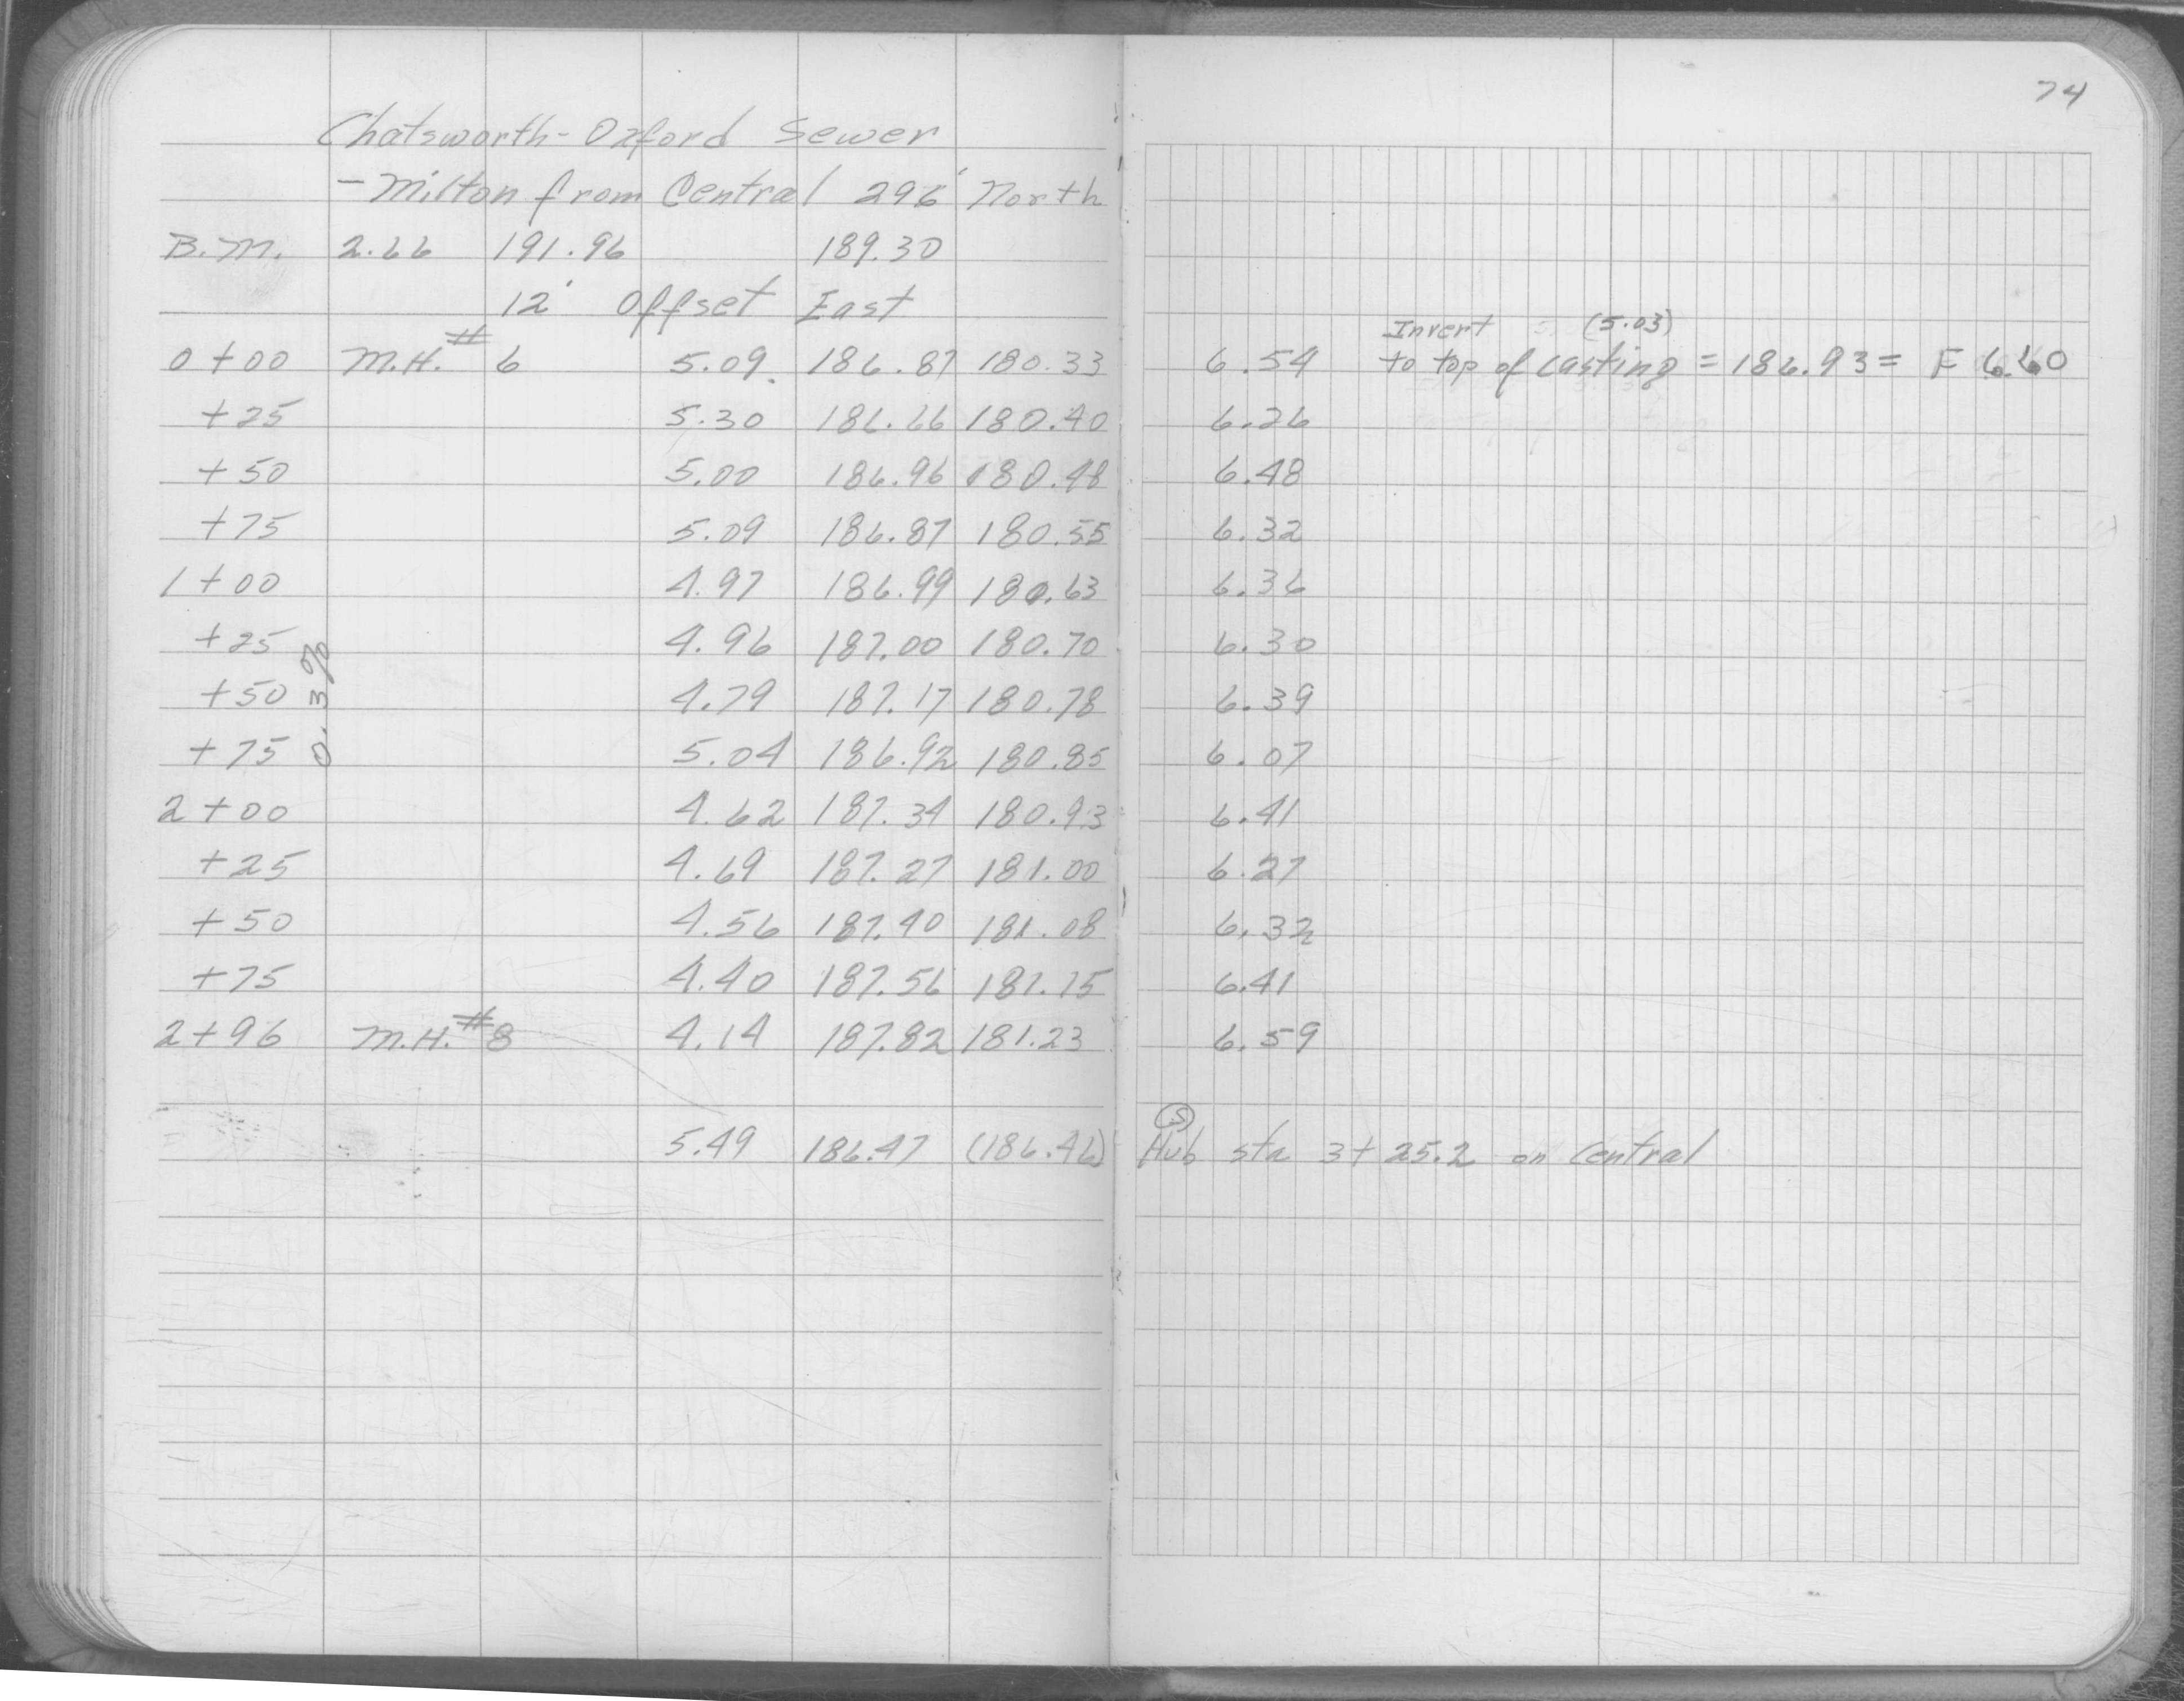 74
Chatsworth - Oxford Sewer
- Milton from Central 296' North
B.M. 2.66 191.96 189.30
12' Offset East
Invert (5.03)
0+00 M.H. # 6 5.09 186.87 180.33 6.54 to top of casting = 186.93 = F 6.60
+25 5.30 186.66 180.40 6.26
+50 5.00 186.96 180.48 6.48
+75 5.09 186.87 180.55 6.32
1+00 4.97 186.99 180.63 6.36
+25 4.96 187.00 180.70 6.30
0.3%
+50 4.79 187.17 180.78 6.39
+75 5.04 186.92 180.85 6.07
2+00 4.62 187.34 180.93 6.41
+25 4.69 187.27 181.00 6.27
+50 4.56 187.40 181.08 6.32
+75 4.40 187.56 181.15 6.41
2+96 M.H. # 8 4.14 187.82 181.23 6.59
S
5.49 186.47 (186.46) Hub sta 3+25.2 on Central